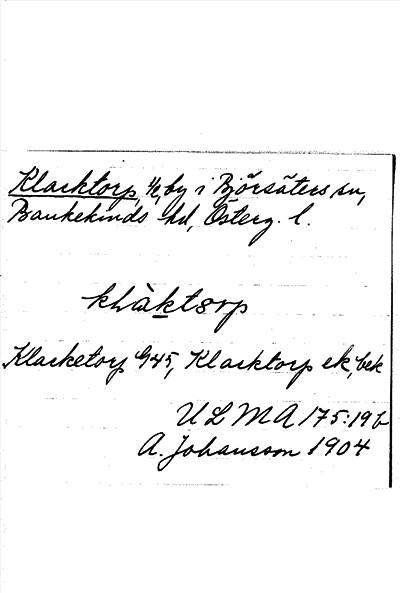 Klacktorp, 1/2, by i Björsäters sn,
Bankekinds hd, Österg. l.
kLàktorp
Klacketorp G45, Klacktorp ek, bek
ULMA 175:19 b
A. Johansson 1904